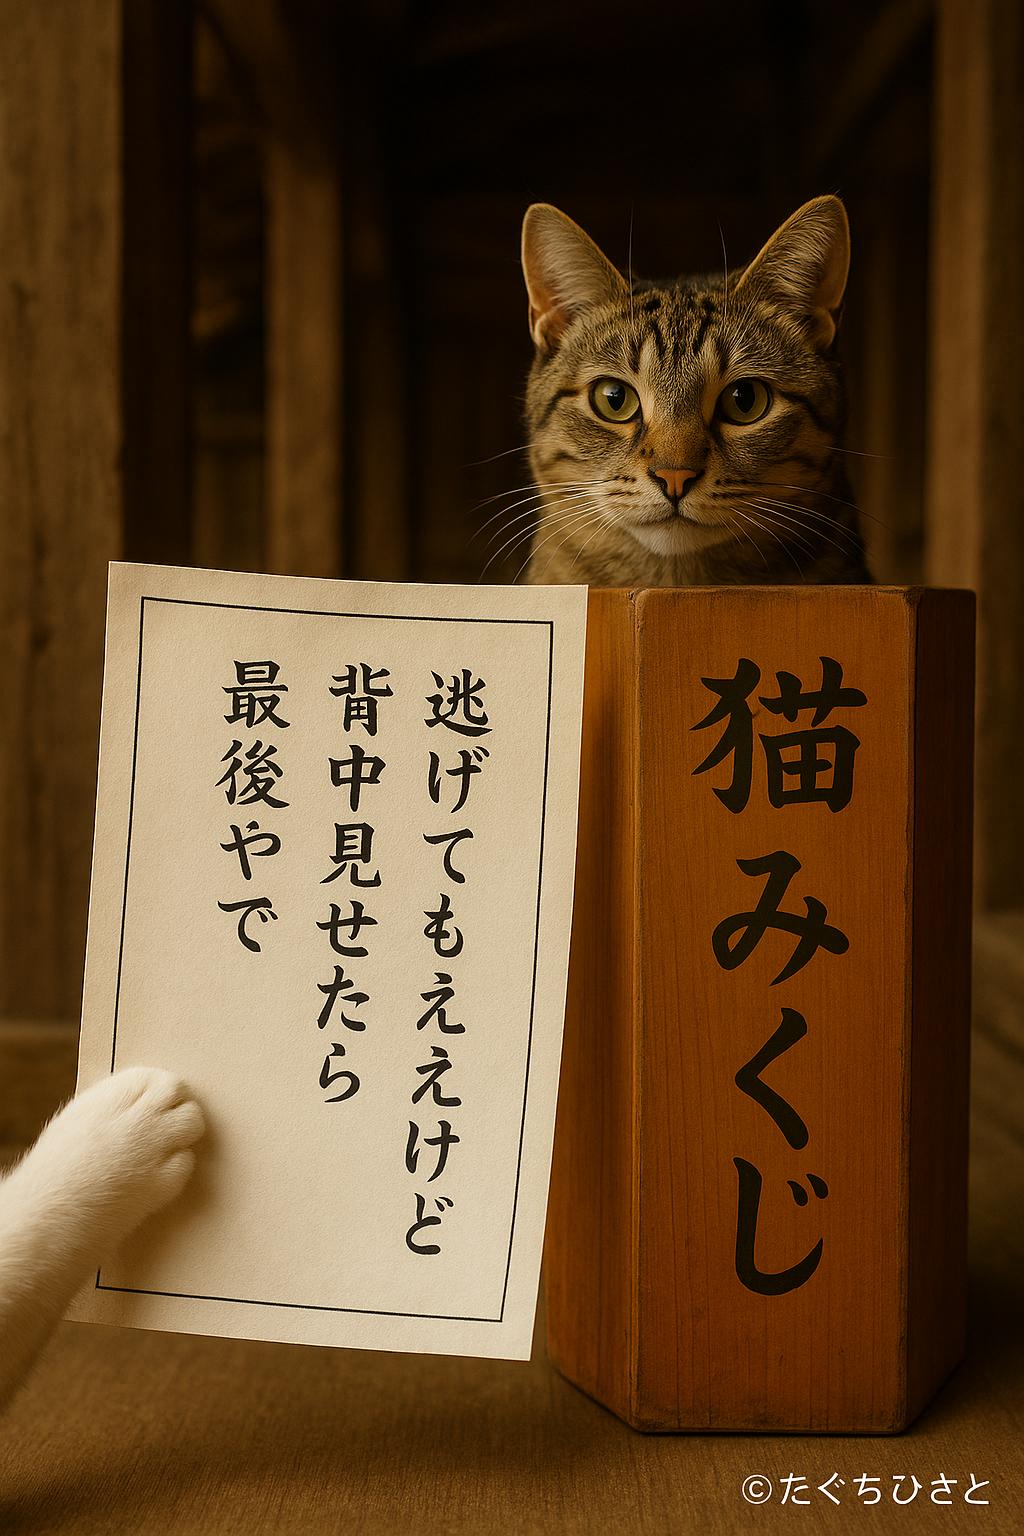 逃げてもええけど
背中見せたら
最後やで
猫みくじ
©たぐちひさと